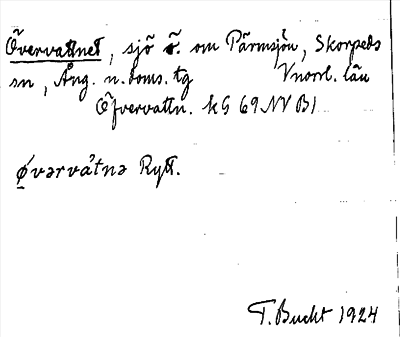 Övervattnet, sjö ö. om Pärmsjön, Skorpeds
sn, Ång. n. doms. tg Vnorrl. län
Öfvervattn. kG 69 NV B1
ǿvərvàtnə Rytt.
T. Bucht 1924